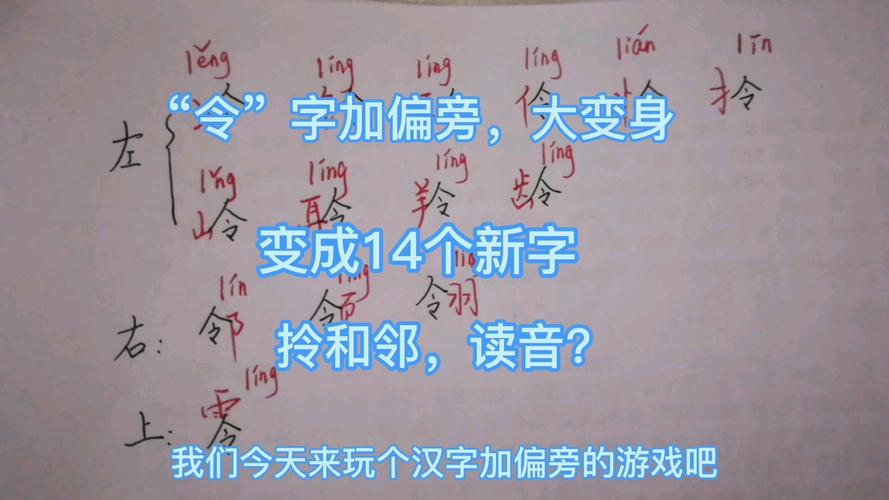 lěng líng líng líng lián līn
冷 伶 怜 拎
“令”字加偏旁，大变身
左
lǐng líng líng líng
岭 聆 羚 龄
变成14个新字
lín
右： 邻 领 翎
拎和邻，读音?
líng
上： 零
我们今天来玩个汉字加偏旁的游戏吧